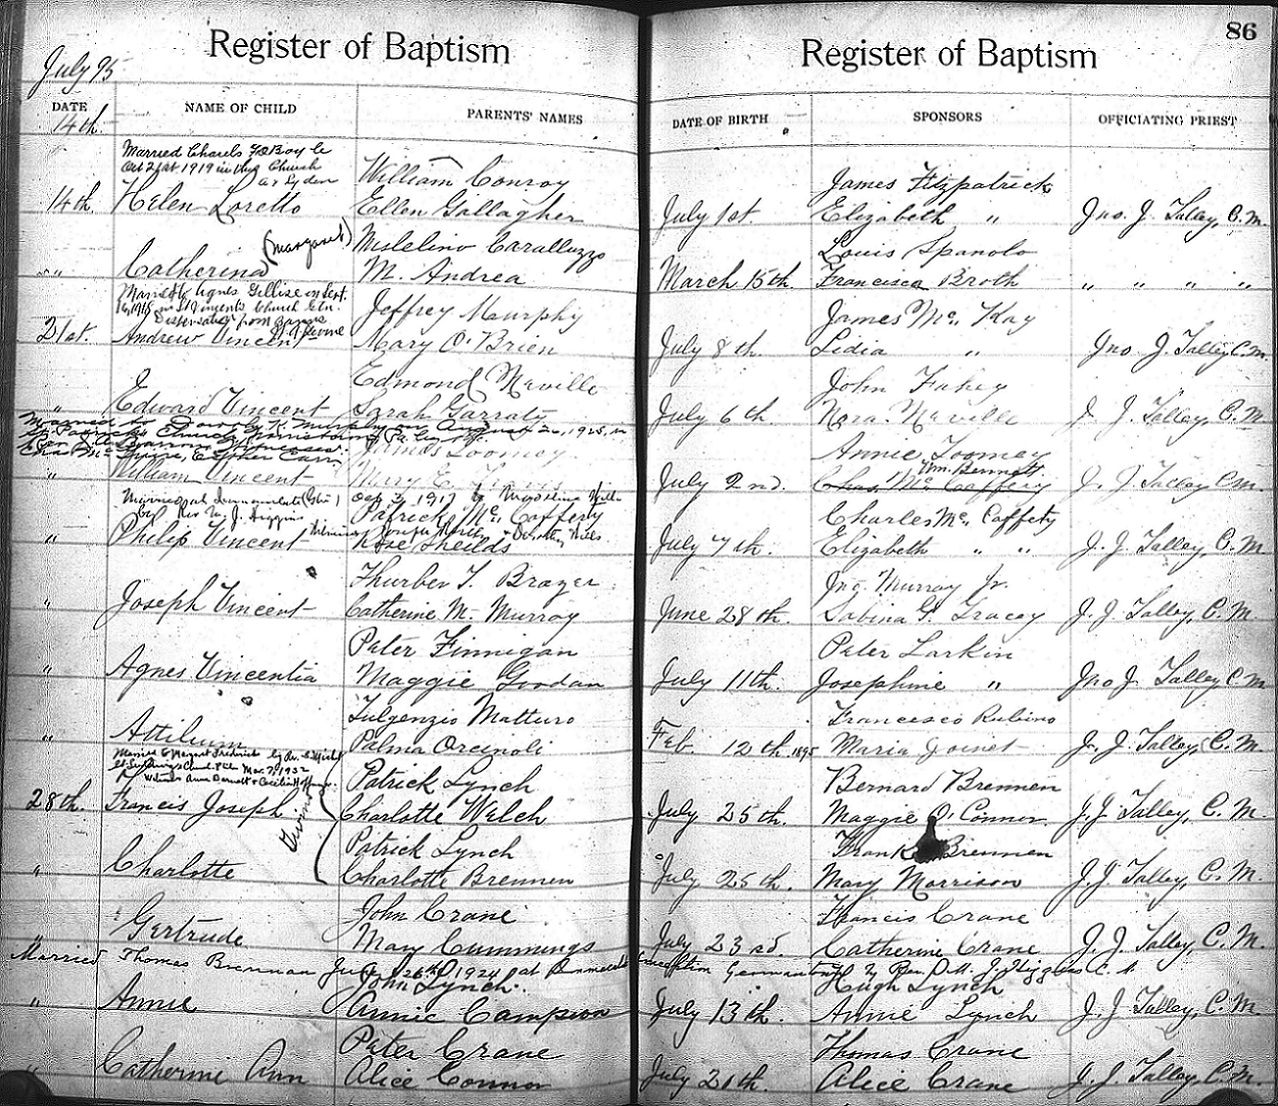 86
Register of Baptism
Register of Baptism
July 95
DATE NAME OF CHILD PARENTS' NAMES DATE OF BIRTH SPONSORS OFFICIATING PRIEST
14th.
Married Charles Boyle
Oct 21st 1919 in this Church
William Conroy James Fitzpatrick
14th. Helen Loretto Ellen Gallagher July 1st. Elizabeth " Jno. J. Talley, C.M.
(Margaret) Caralluzzo Louis Spanolo
" Catherina M. Andrea March 15th. Francisca Broth " " " "
Married Agnes in Sept.
St Vincents Church Gtn.
Dispensation from banns
Jeffrey Murphy James Mc. Kay
21st. Andrew Vincent Mary O'Brien July 8th. Lidia " Jno. J. Talley C.M.
Edmond Neville John Fahey
" Edward Vincent Sarah Garraty July 6th. Nora Neville J. J. Talley, C.M.
Married to Dorothy K. Murphy on August 26, 1925, in
James Toomey Annie Toomey
Wm. Bennett
" William Vincent Mary E. July 2nd. Chas. Mc. Caffery J. J. Talley C.M.
Married at Immaculate Oct 3, 1917
by Rev. J. Higgins Patrick Mc. Caffery Charles Mc. Caffety
" Philip Vincent Rose Sheilds July 7th. Elizabeth " " J. J. Talley, C.M.
Thurber T. Brazer Jno. Murray Jr.
" Joseph Vincent Catherine M. Murray June 28th. Sabina G. Tracey J. J. Talley, C.M.
Peter Finnigan Peter Larkin
" Agnes Vincentia Maggie Gordan July 11th. Josephine " Jno J. Talley C.M.
Fulgenzio Matturo Francesco Rubino
" Palma Orcinoli Feb. 12th. 1895 Maria J. J. Talley, C.M.
Mar. 7, 1932
Patrick Lynch Bernard Brennen
28th. Francis Joseph Charlotte Welch July 25th. Maggie O. Connor. J. J. Talley, C.M.
Patrick Lynch Frank Brennen
" Charlotte Charlotte Brennen July 25th. Mary Morrison J. J. Talley, C.M.
John Crane Francis Crane
" Gertrude Mary Cummings July 23rd Catherine Crane J. J. Talley, C.M.
Married Thomas Brennan 26th 1924 at Immaculate Conception Germantown by Rev. J. Higgins C.M.
John Lynch. Hugh Lynch
" Annie Annie Campion July 13th. Annie Lynch J. J Talley, C.M.
Peter Crane Thomas Crane
" Catherine Ann Alice Connor July 21th. Alice Crane J. J. Talley, C.M.